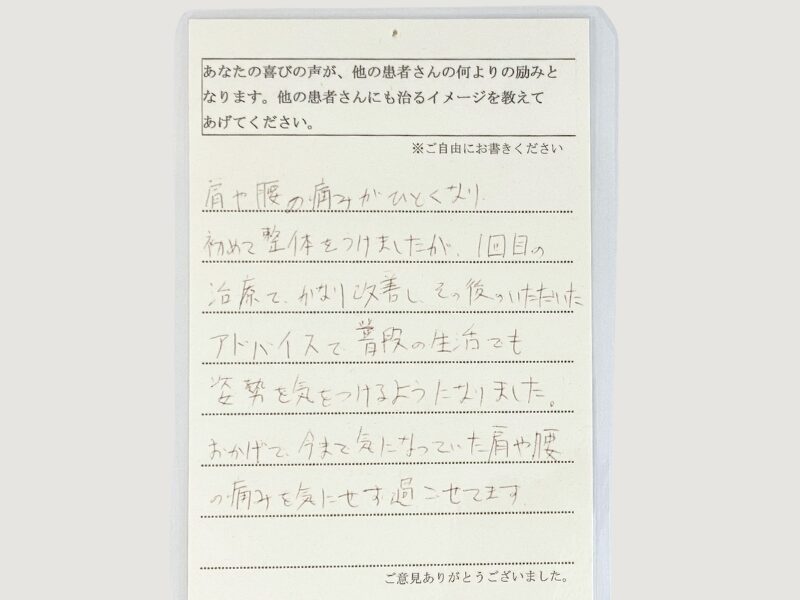 あなたの喜びの声が、他の患者さんの何よりの励みと
なります。他の患者さんにも治るイメージを教えて
あげてください。
※ご自由にお書きください
肩や腰の痛みがひどくなり
初めて整体をうけましたが、1回目の
治療で、かなり改善し、その後のいただいた
アドバイスで、普段の生活でも
姿勢を気をつけるようになりました。
おかげで、今まで気になっていた肩や腰
の痛みを気にせず過ごせてます
ご意見ありがとうございました。